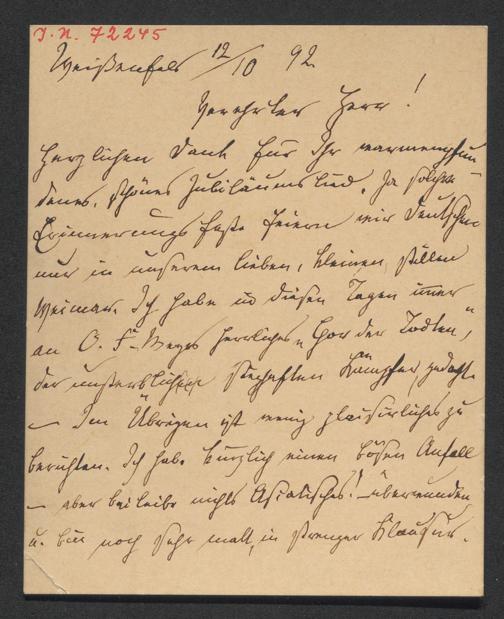 J. N. 72245
Weißenfels 12/10 92
Verehrter Herr!
Herzlichen Dank für Ihr warmempfun-
denes, schönes Jubiläumslied. Ja solche
Erinnerungsfeste feiern wir Deutschen
nur in unserem lieben, kleinen, stillen
Weimar. Ich habe in diesen Tagen immer
an C. F. Meyers herrliches „Chor der Todten",
der unsterblichen Kämpfer, gedacht.
— Im Übrigen ist wenig plaisirliches zu
berichten. Ich habe kürzlich einen bösen Anfall
— aber beileibe nichts Asiatisches! — überwunden
u. bin noch sehr matt, in strenger Klausur.